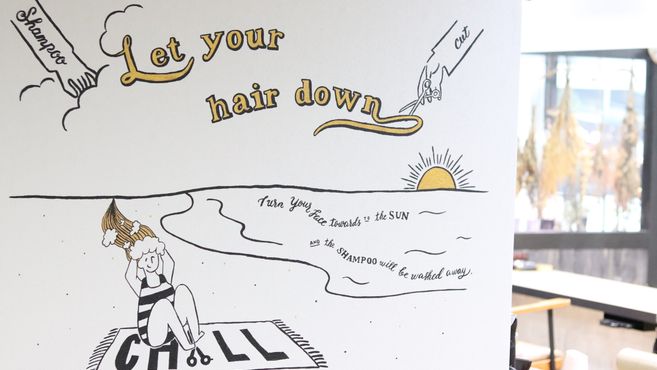 Shampoo
Let your
hair down
Cut
Turn Your face towards to the SUN
AND the SHAMPOO will be washed away.
CHILL